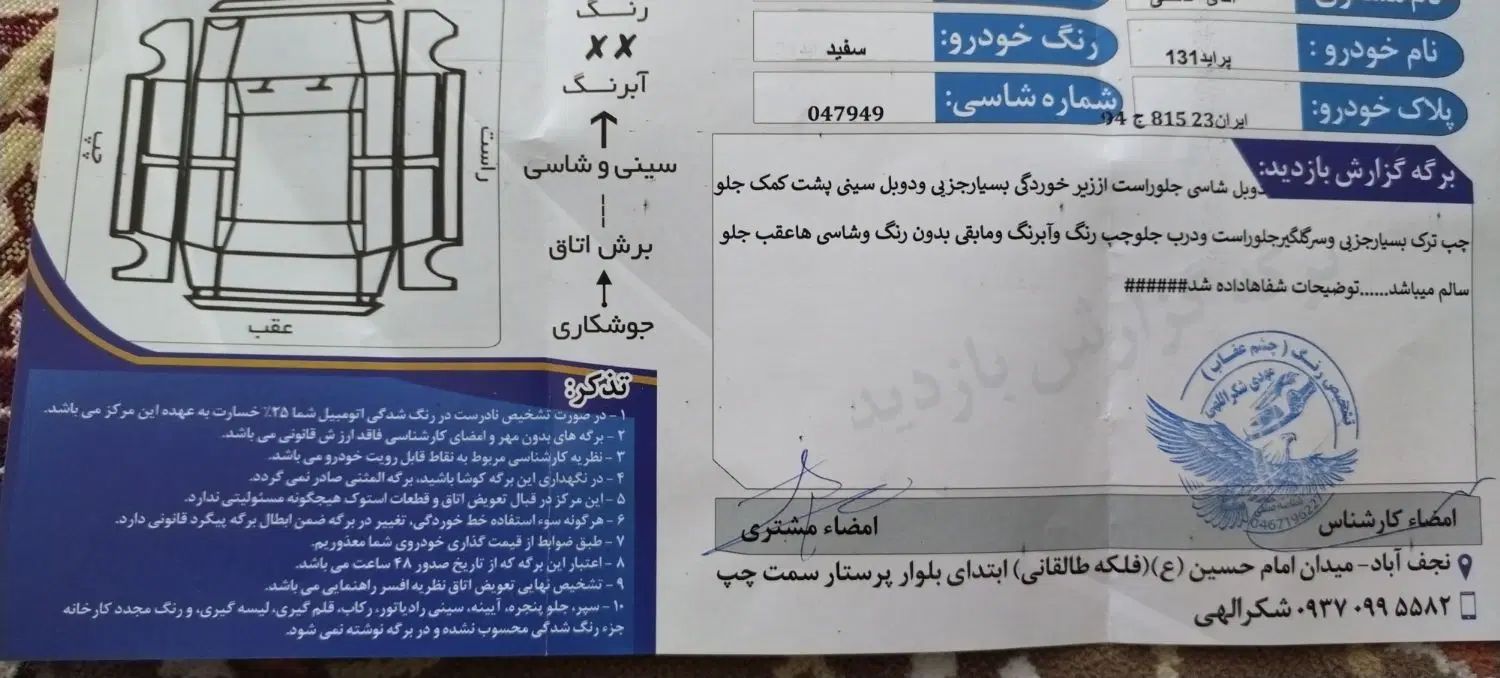 رنگ خودرو: سفید
نام خودرو : پراید131
شماره شاسی: 047949
پلاک خودرو: ایران23 815 ج 94
برگه گزارش بازدید:
دوبل شاسی جلوراست اززیر خوردگی بسیارجزیی ودوبل سینی پشت کمک جلو
چپ ترک بسیارجزیی وسرگلگیرجلوراست ودرب جلوچپ رنگ وآبرنگ ومابقی بدون رنگ وشاسی هاعقب جلو
سالم میباشد......توضیحات شفاهاداده شد######
گزارش بازدید
تشخیص رنگ ( چشم عقاب )
مهدی شکراللهی
امضاء کارشناس
امضاء مشتری
نجف آباد- میدان امام حسین (ع)(فلکه طالقانی) ابتدای بلوار پرستار سمت چپ
۰۹۳۷ ۰۹۹ ۵۵۸۲ شکرالهی
رنگ
✘✘
آبرنگ
سینی و شاسی
برش اتاق
جوشکاری
راست
چپ
عقب
تذکر:
۱- در صورت تشخیص نادرست در رنگ شدگی اتومبیل شما ۲۵٪ خسارت به عهده این مرکز می باشد.
۲- برگه های بدون مهر و امضای کارشناسی فاقد ارز ش قانونی می باشد.
۳- نظریه کارشناسی مربوط به نقاط قابل رویت خودرو می باشد.
۴- در نگهداری این برگه کوشا باشید، برگه المثنی صادر نمی گردد.
۵- این مرکز در قبال تعویض اتاق و قطعات استوک هیچگونه مسئولیتی ندارد.
۶- هرگونه سوء استفاده خط خوردگی، تغییر در برگه ضمن ابطال برگه پیگرد قانونی دارد.
۷- طبق ضوابط از قیمت گذاری خودروی شما معذوریم.
۸- اعتبار این برگه که از تاریخ صدور ۴۸ ساعت می باشد.
۹- تشخیص نهایی تعویض اتاق نظریه افسر راهنمایی می باشد.
۱۰- سپر، جلو پنجره، آیینه، سینی رادیاتور، رکاب، قلم گیری، لیسه گیری، و رنگ مجدد کارخانه
جزء رنگ شدگی محسوب نشده و در برگه نوشته نمی شود.